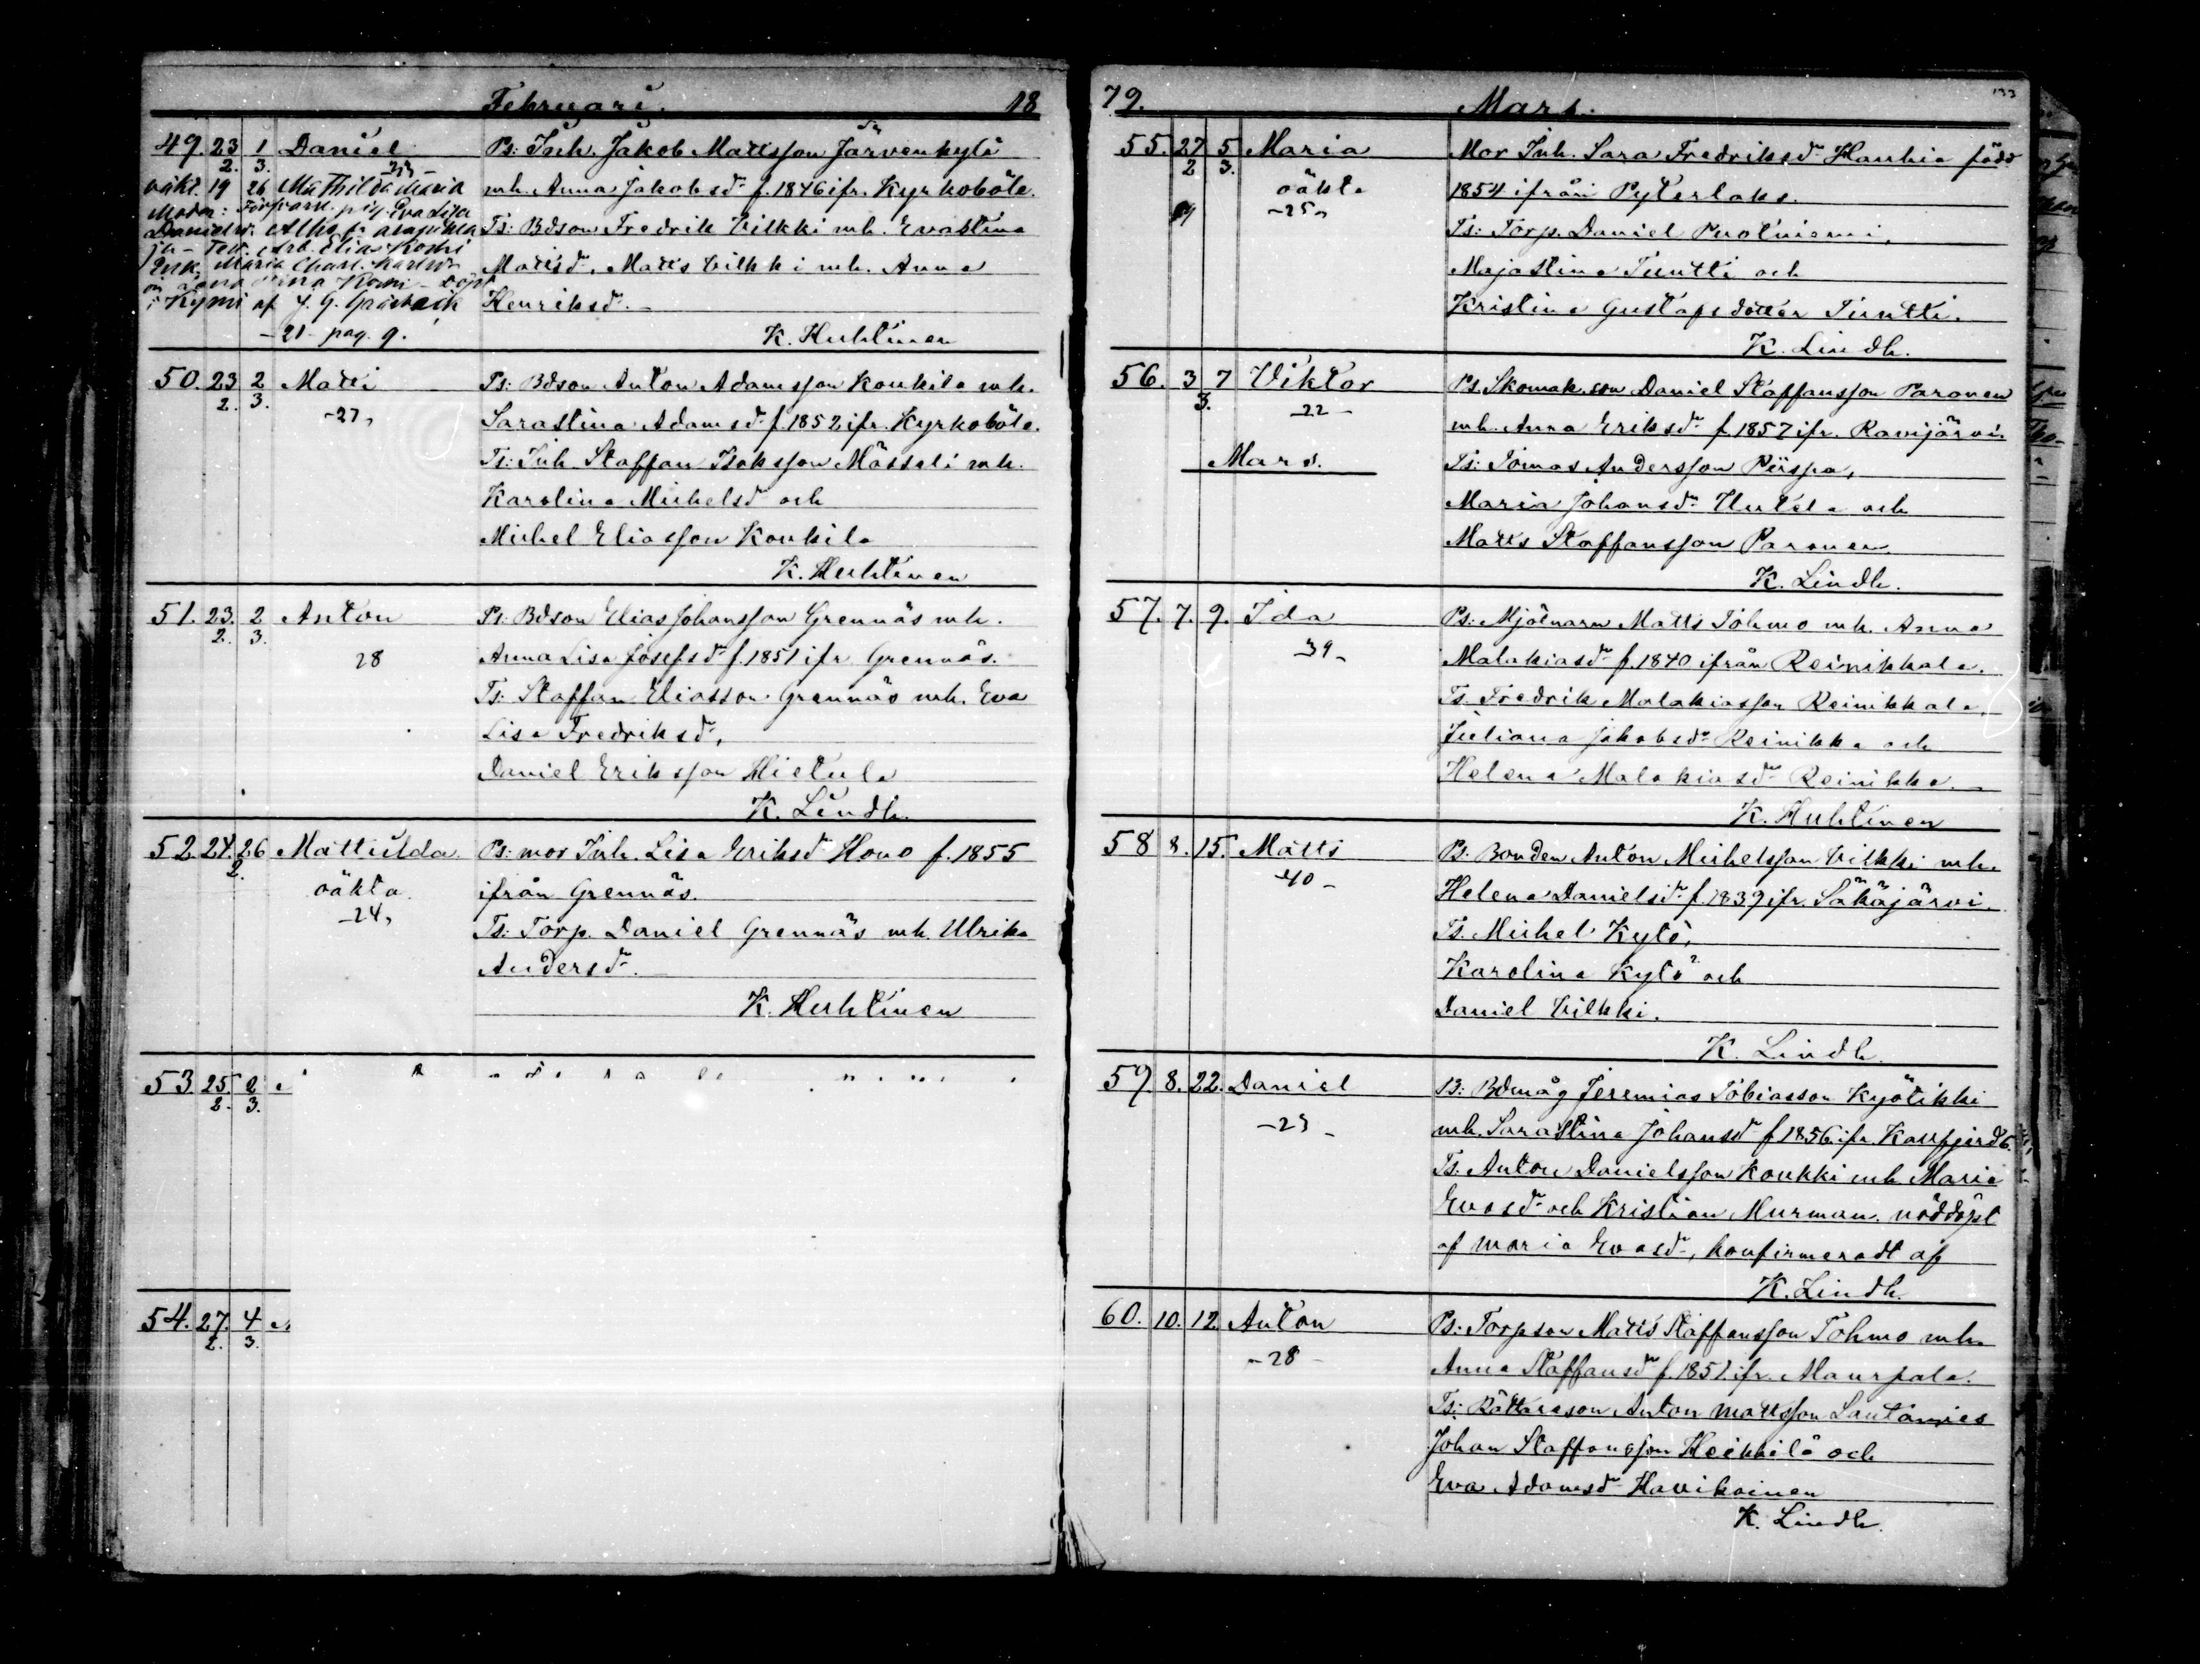 Februari. 18
49. 23/2. 1/3. Daniel -33-
Ps: Inh. Jakob Mattsson Järvenkylä
mh. Anna Jakobsd. f. 1846 ifr. Kyrkoböle.
Ts: Bdson Fredrik Vilkki mh. Evastina
Mattsd. Matts Vilkki mh. Anna
Henriksd.
K. Huhtinen
oäkt. 19 26 Mathilda Maria
Moder: pig. Eva Lisa
Elias Koski
Maria
i Kymi af J. G.
-21- pag. 9.
50. 23/2. 2/3. Matti -27,
Ps: Bdson Anton Adamsson Koukila mh.
Sarastina Adamsd. f. 1852 ifr. Kyrkoböle.
Ts: Inh. Staffan Isaksson Mässeli mh.
Karolina Michelsd och
Michel Eliasson Koukila
K. Huhtinen
51. 23./2. 2/3. Anton 28
Ps: Bdson Elias Johansson Grennäs mh.
Anna Lisa Josefsd. f. 1851 ifr. Grennäs.
Ts: Staffan Eliasson Grennäs mh. Eva
Lisa Fredriksd.,
Daniel Eriksson Hietula
K. Lindh.
52. 24./2. 26 Mattilda.
oäkta.
-24,
Ps: mor Inh. Lisa Eriksd. Hovo f. 1855
ifrån Grennäs.
Ts: Torp. Daniel Grennäs mh. Ulrika
Andersd.
K. Huhtinen
53. 25/2. 2/3.
54. 27./2. 4/3.
79. Mars. 133
55. 27/2 5/3. Maria
oäkta
-25,
Mor Inh. Sara Fredriksd. Haukia född
1854 ifrån Pyterlaks.
Ts: Torp. Daniel Puotniemi,
Majastina Tuntti och
Kristina Gustafsdotter Tuntti.
K. Lindh.
56. 3/3. 7 Viktor
-22-
Mars.
Ps. Skomak.son Daniel Staffansson Paronen
mh. Anna Eriksd. f. 1857 ifr. Ravijärvi.
Ts: Tomas Andersson Piispa,
Maria Johansd. Hutela och
Matts Staffansson Paronen.
K. Lindh.
57. 7. 9. Ida
-39-
Ps: Mjölnarn Matts Tohmo mh. Anna
Malakiasd. f. 1840 ifrån Reinikkala.
Ts. Fredrik Malakiasson Reinikkala,
Juliana Jakobsd. Reinikka och
Helena Malakiasd. Reinikka.
K. Huhtinen
58 8. 15. Matts
-40-
Ps. Bonden Anton Michelsson Vilkki mh.
Helena Danielsd. f. 1839 ifr. Säkäjärvi.
Ts. Michel Kylö,
Karolina Kylö och
Daniel Vilkki.
K. Lindh.
59. 8. 22. Daniel
-23-
Ps: Bdmåg Jeremias Tobiasson Kyötikki
mh. Sarastina Johansd. f. 1856 ifr.
Ts. Anton Danielsson Koukki mh. Maria
Evasd. och Kristian Murman. nöddöpt
af Maria Evasd., konfirmeradt af
K. Lindh.
60. 10. 12. Anton
-28-
Ps: Torpson Matts Staffansson Tohmo mh.
Anna Staffansd. f. 1851 ifr. Maurpala.
Ts: Anton Mattsson Lautamies
Johan Staffansson Heikkilä och
Eva Adamsd. Havikainen
K. Lindh.